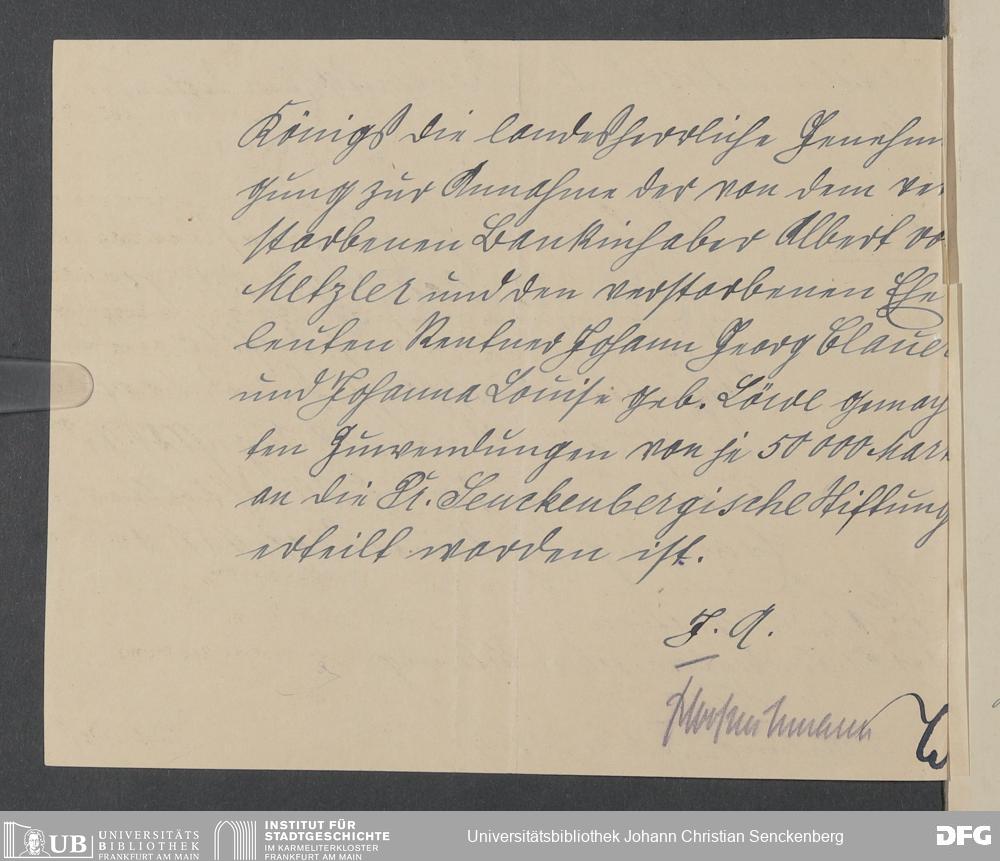 Königs die landesherrliche Genehm
gung zur Annahme der von dem ver
storbenen Bankinhaber Albert vo
Metzler und den verstorbenen Ehe
leuten Rentner Johann Georg Clauer
und Johanna Louise geb. Löwl gemach
ten Zuwendungen von je 50 000 Mark
an die Dr. Senckenbergische Stiftung
erteilt worden ist.
I. A.
UB UNIVERSITÄTS
BIBLIOTHEK
FRANKFURT AM MAIN
INSTITUT FÜR
STADTGESCHICHTE
IM KARMELITERKLOSTER
FRANKFURT AM MAIN
Universitätsbibliothek Johann Christian Senckenberg
DFG